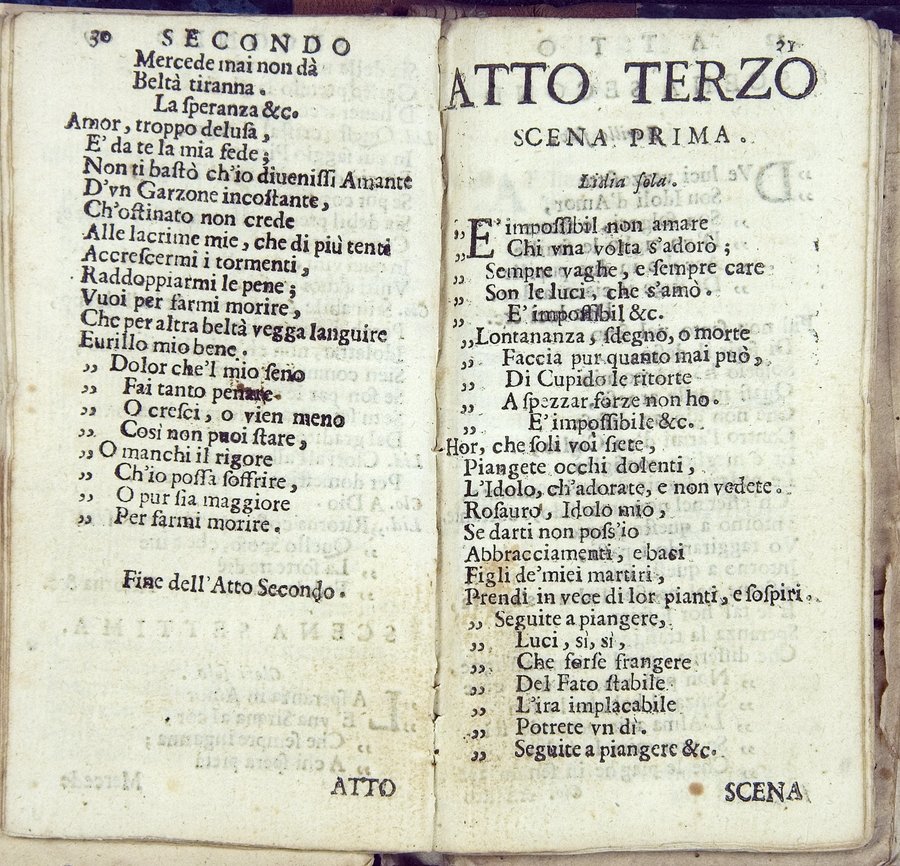 30 SECONDO
Mercede mai non dà
Beltà tiranna.
La ſperanza &c.
Amor, troppo deluſa,
E' da te la mia fede;
Non ti baſtò ch'io diueniſſi Amante
D'vn Garzone incoſtante,
Ch'oſtinato non crede
Alle lacrime mie, che di più tenti
Accreſcermi i tormenti,
Raddoppiarmi le pene;
Vuoi per farmi morire,
Che per altra beltà vegga languire
Eurillo mio bene.
„ Dolor che'l mio ſeno
„ Fai tanto penare
„ O creſci, o vien meno
„ Così non puoi ſtare,
„ O manchi il rigore
„ Ch'io poſſa ſoffrire,
„ O pur ſia maggiore
„ Per farmi morire.
Fine dell'Atto Secondo.
ATTO
21
ATTO TERZO
SCENA PRIMA.
Lidia ſola.
„ E' impoſſibil non amare
„ Chi vna volta s'adorò;
„ Sempre vaghe, e ſempre care
„ Son le luci, che s'amò.
„ E' impoſſibil &c.
„ Lontananza, ſdegno, o morte
„ Faccia pur quanto mai può,
„ Di Cupido le ritorte
„ A ſpezzar forze non ho.
„ E' impoſſibile &c.
Hor, che ſoli voi ſiete,
Piangete occhi dolenti,
L'Idolo, ch'adorate, e non vedete.
Roſauro, Idolo mio,
Se darti non poſs'io
Abbracciamenti, e baci
Figli de'miei martiri,
Prendi in vece di lor pianti, e ſoſpiri.
„ Seguite a piangere,
„ Luci, sì, sì,
„ Che forſe frangere
„ Del Fato ſtabile
„ L'ira implacabile
„ Potrete vn dì.
„ Seguite a piangere &c.
SCENA